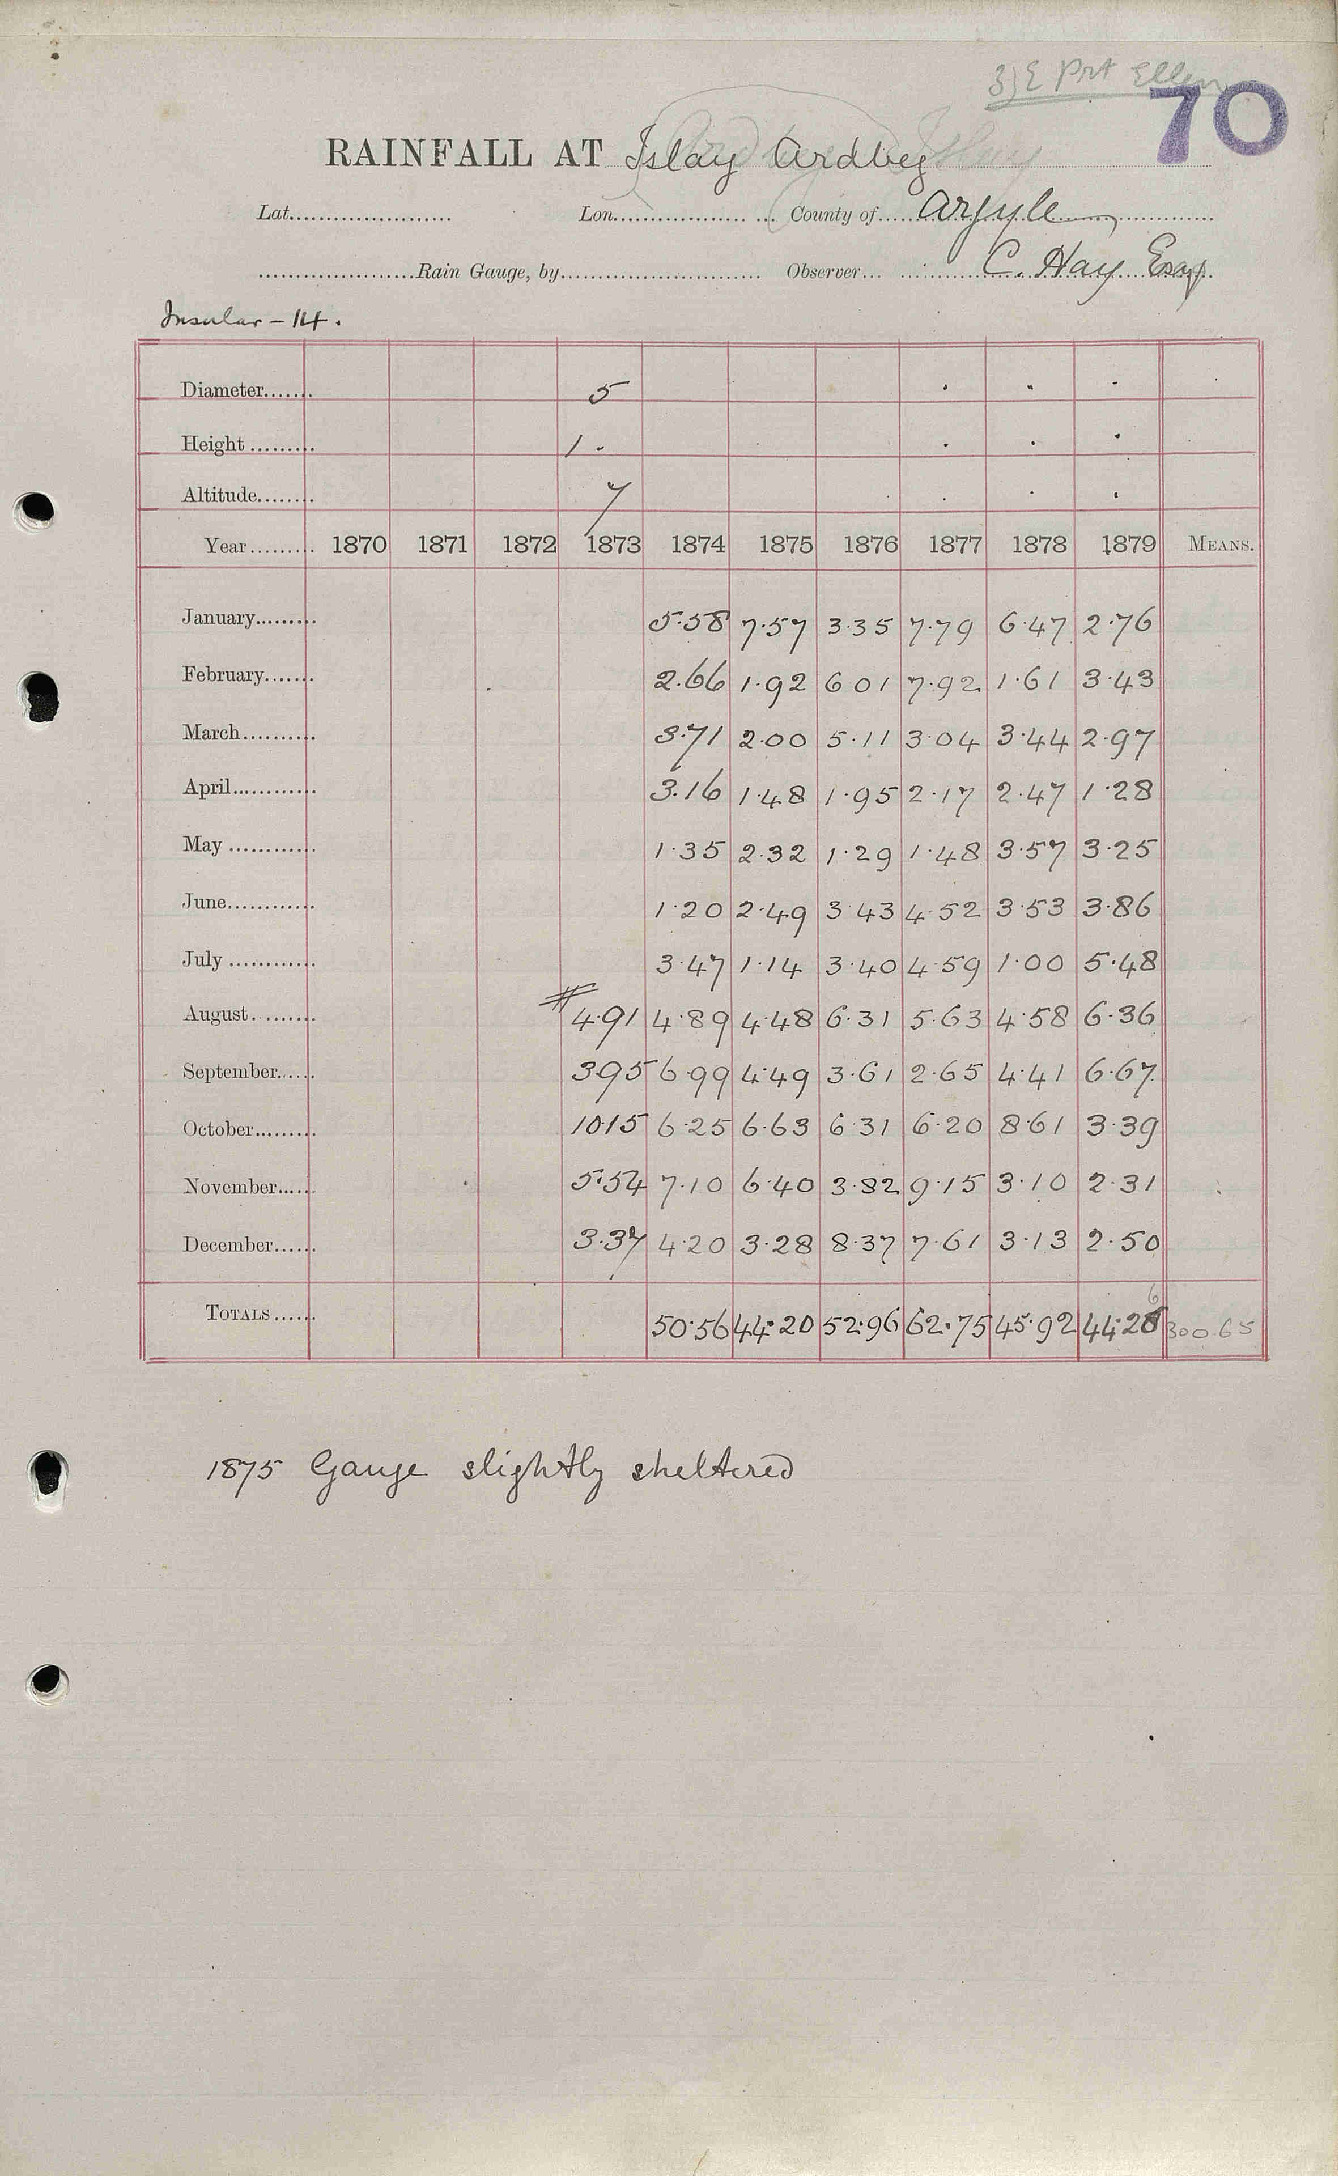 3) E Port Ellen
70
RAINFALL AT Islay Ardbeg
Lat. Lon. County of Argyle
Rain Gauge, by Observer C. Hay Esqr.
Insular - 14.
Diameter 5
Height 1 .
Altitude 7
Year 1870 1871 1872 1873 1874 1875 1876 1877 1878 1879 MEANS.
January 5.58 7.57 3.35 7.79 6.47 2.76
February 2.66 1.92 6 01 7.92 1.61 3.43
March 3.71 2.00 5.11 3.04 3.44 2.97
April 3.16 1.48 1.95 2.17 2.47 1.28
May 1.35 2.32 1.29 1.48 3.57 3.25
June 1.20 2.49 3.43 4.52 3.53 3.86
July 3.47 1.14 3.40 4.59 1.00 5.48
August # 4.91 4.89 4.48 6.31 5.63 4.58 6.36
September 3.95 6.99 4.49 3.61 2.65 4.41 6.67
October 10.15 6.25 6.63 6.31 6.20 8.61 3.39
November 5.54 7.10 6.40 3.82 9.15 3.10 2.31
December 3.37 4.20 3.28 8.37 7.61 3.13 2.50
6
TOTALS 50.56 44.20 52.96 62.75 45.92 44.28 300.65
1875 Gauge slightly sheltered